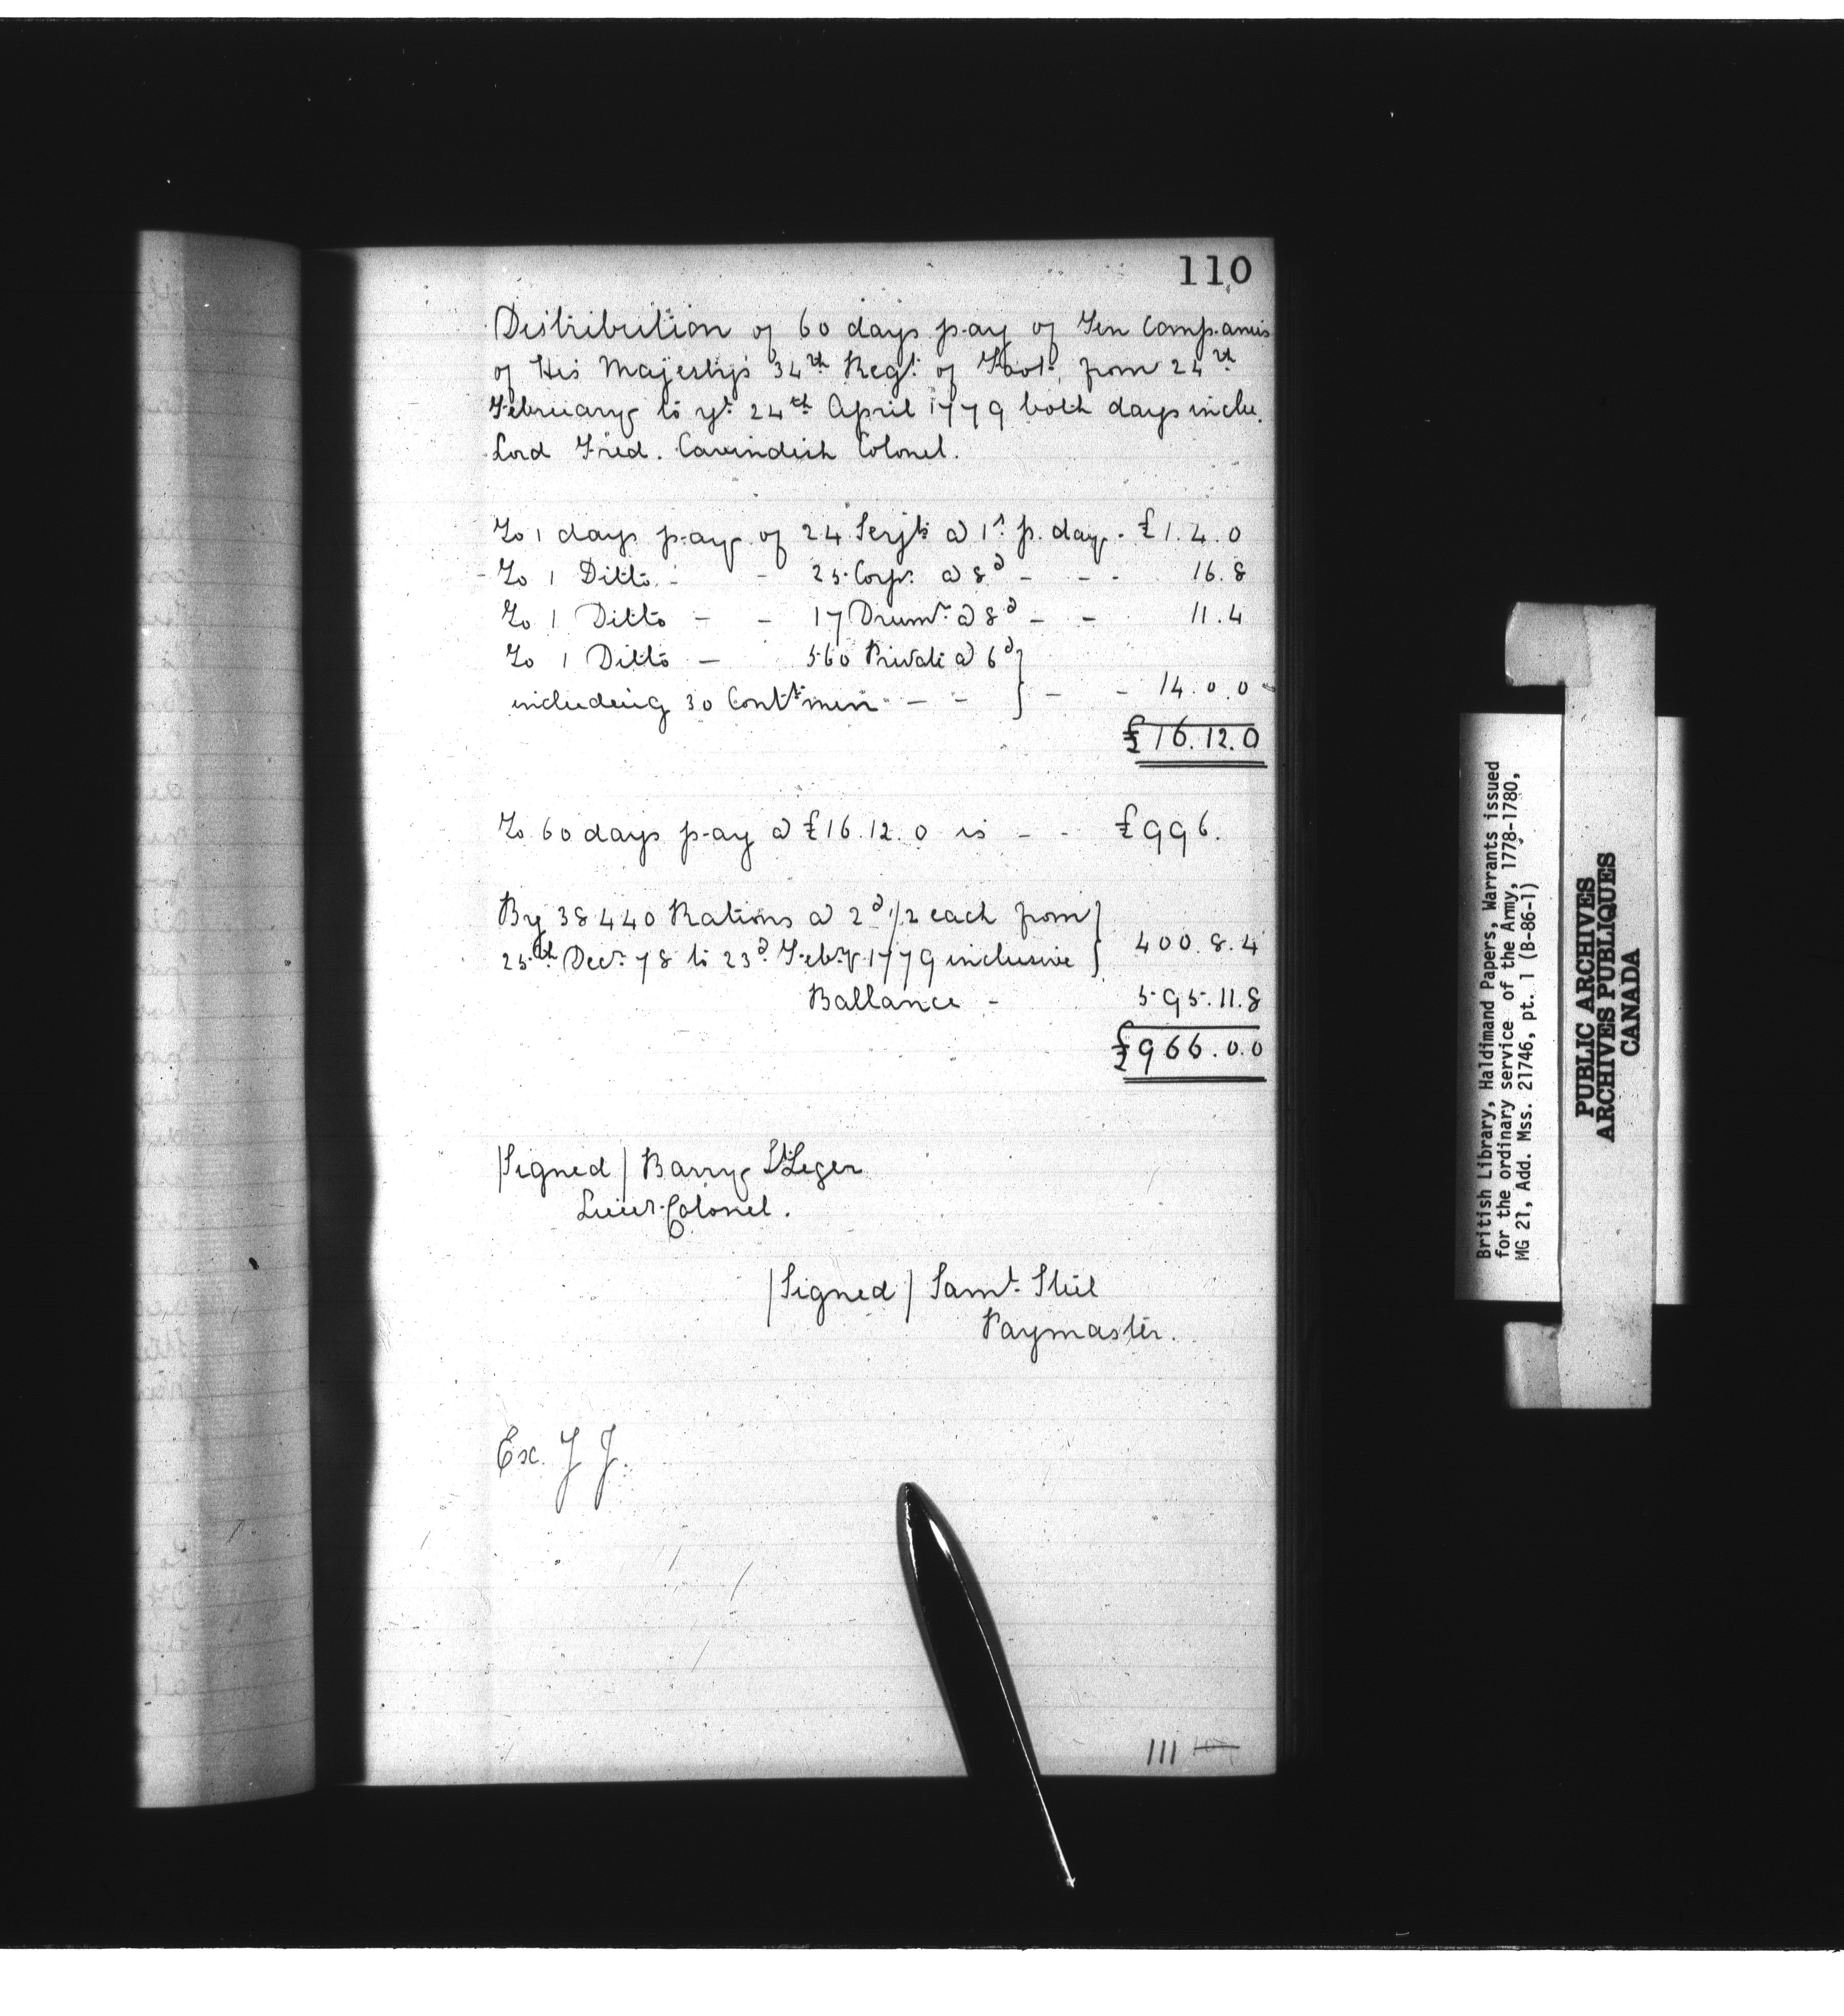 110
Distribution of 60 days pay of Ten Companies
of His Majesty's 34th Regt. of Foot, from 24th
February to ye. 24th April 1779 both days inclu.
Lord Fred. Cavindish Colonel.
To 1 days pay of 24 Serjts @ 1s. p. day - £1.4.0
- To 1 Ditto - - 25 Corps. @ 8d - - - 16.8
To 1 Ditto - - 17 Drumrs @ 8d - - 11.4
To 1 Ditto - 560 Private @ 6d
including 30 Contt. men - - } - - 14.0.0
£16.12.0
To 60 days pay @ £16.12.0 is - - £996.
By 38440 Rations @ 2d 1/2 each from
25th Decr. 78 to 23d Feby. 1779 inclusive } 400.8.4
Ballance - 595.11.8
£966.0.0
|Signed| Barry St Leger
Lieut. Colonel.
|Signed| Saml. Steel
Paymaster.
Ex. J J.
111
British Library, Haldimand Papers, Warrants issued
for the ordinary service of the Army, 1778-1780,
MG 21, Add. Mss. 21746, pt. 1 (B-86-1)
PUBLIC ARCHIVES
ARCHIVES PUBLIQUES
CANADA